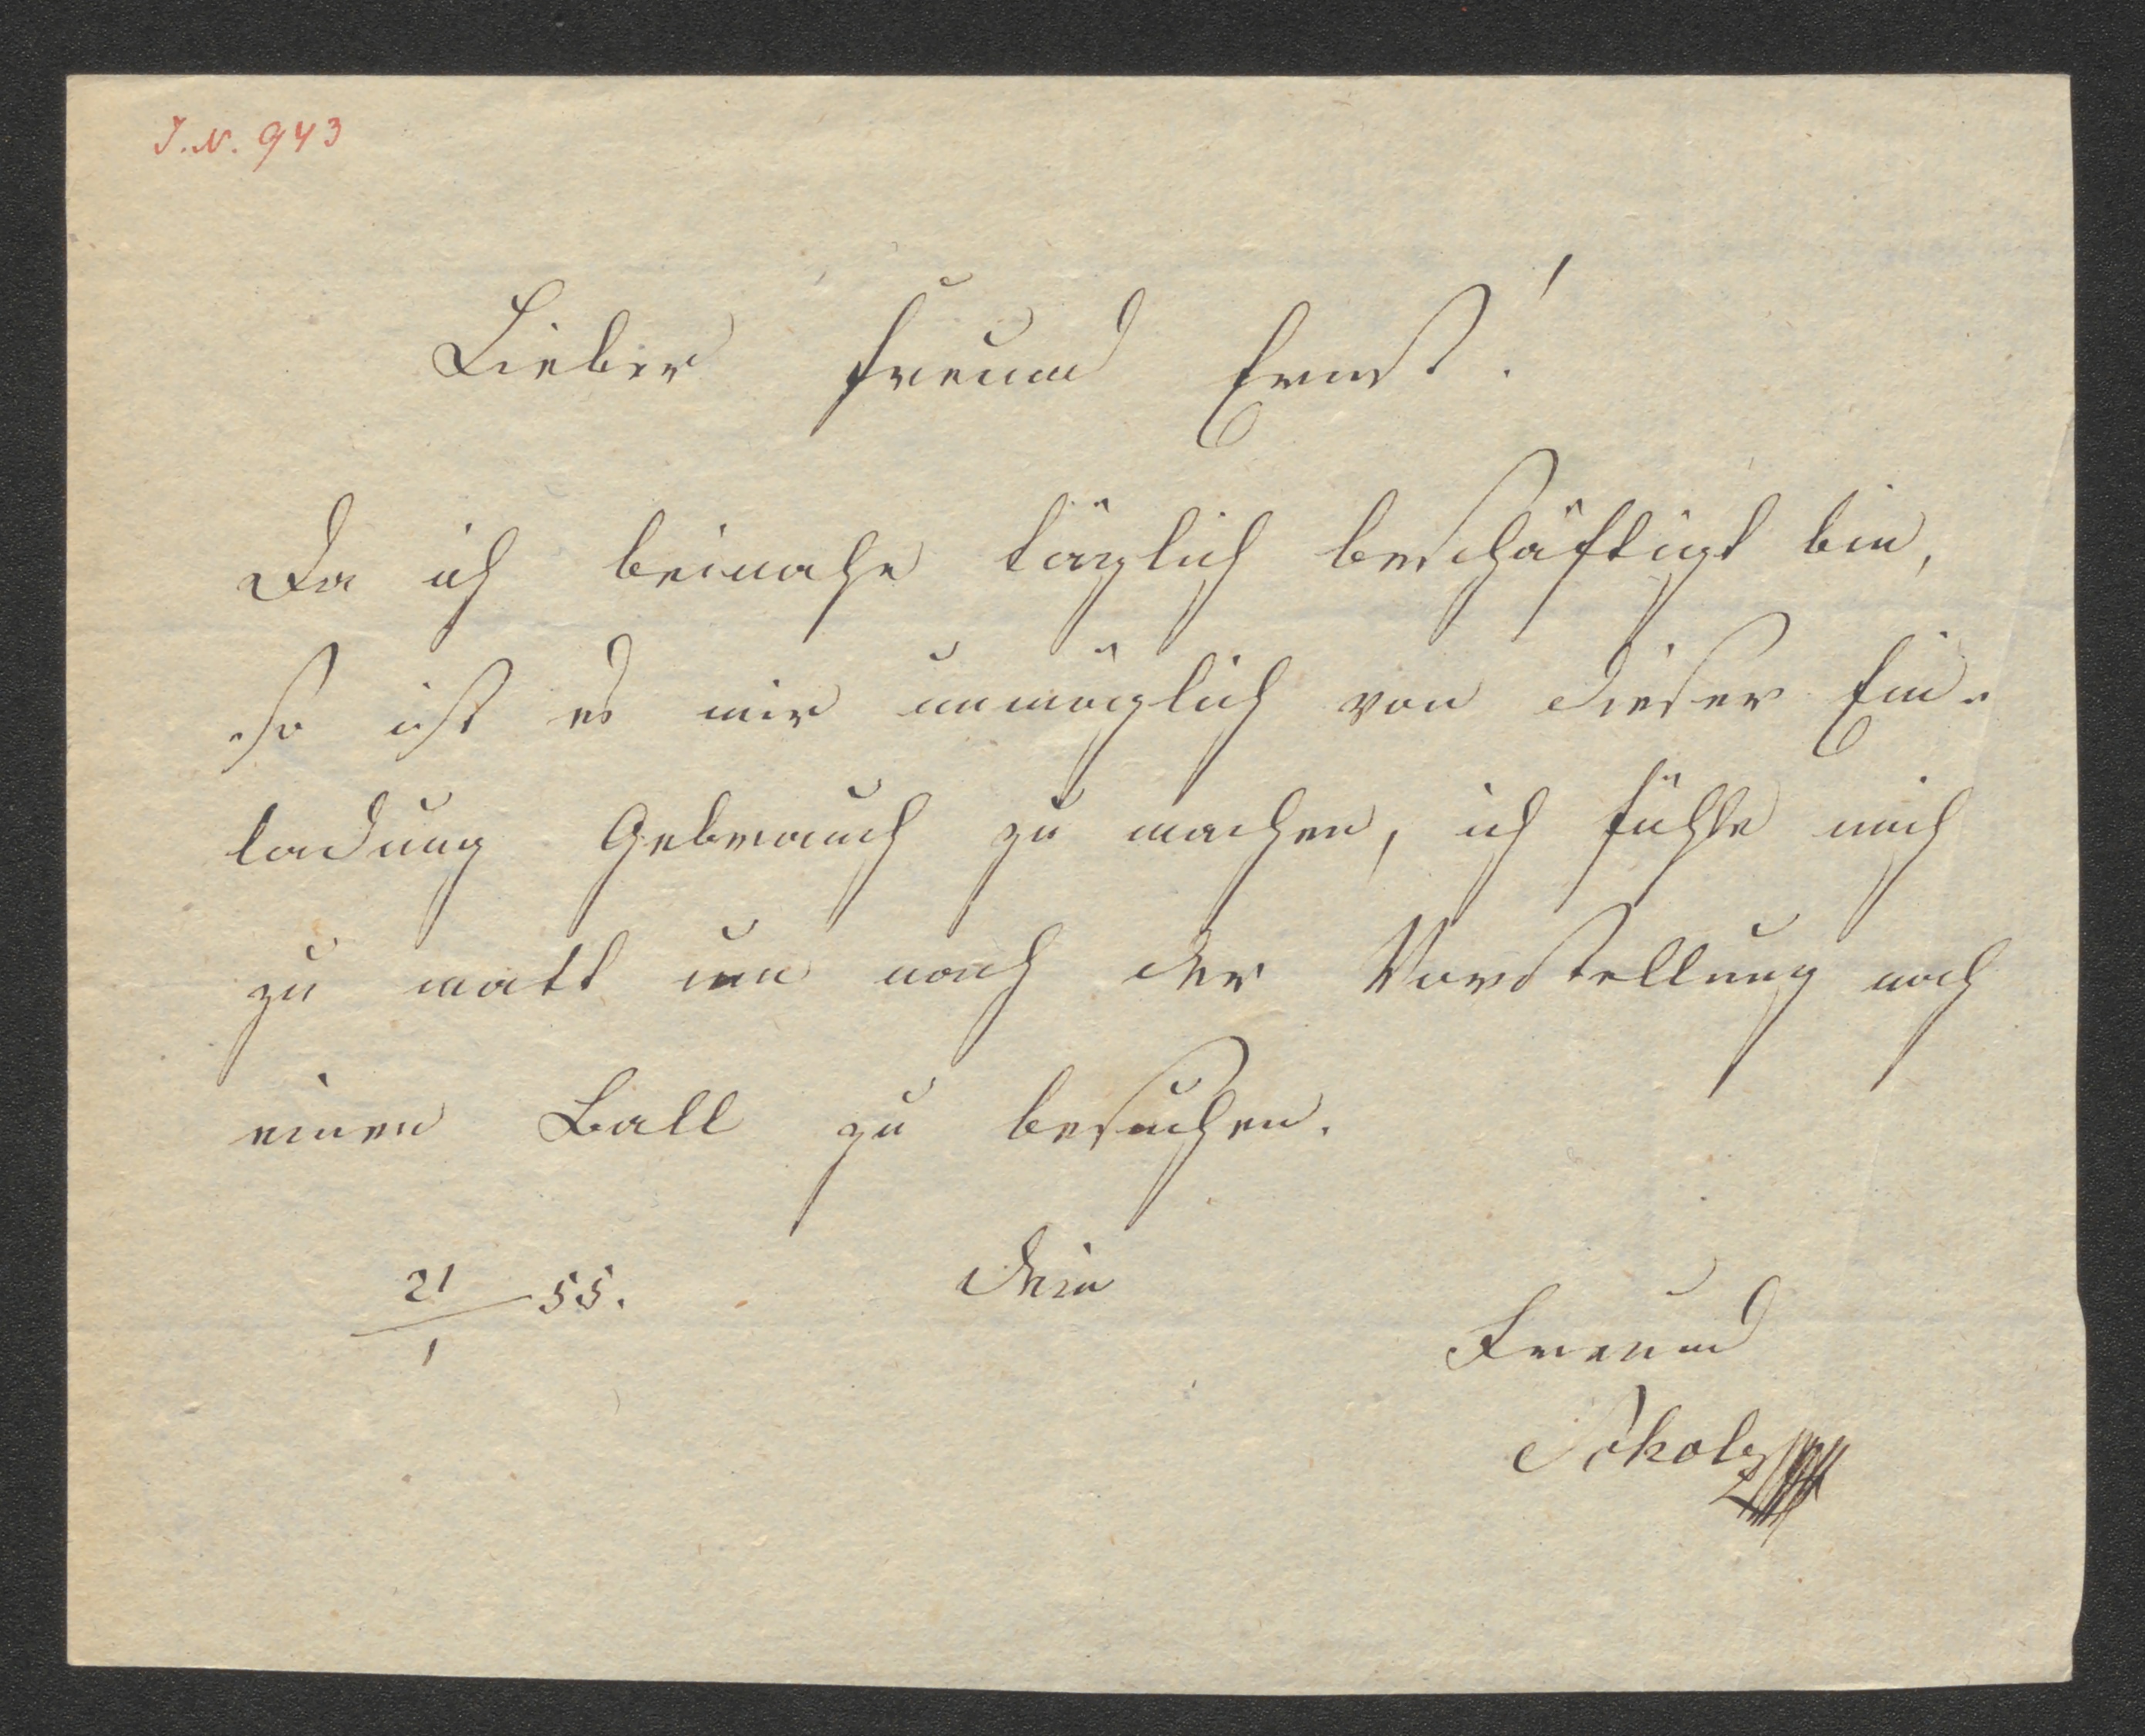 J.N. 943
Lieber Freund Ernst!
Da ich beinahe täglich beschäftigt bin,
so ist es mir unmöglich von dieser Ein-
ladung Gebrauch zu machen, ich fühle mich
zu matt um nach der Vorstellung noch
einen Ball zu besuchen.
21/1 55. Dein
Freund
Scholz